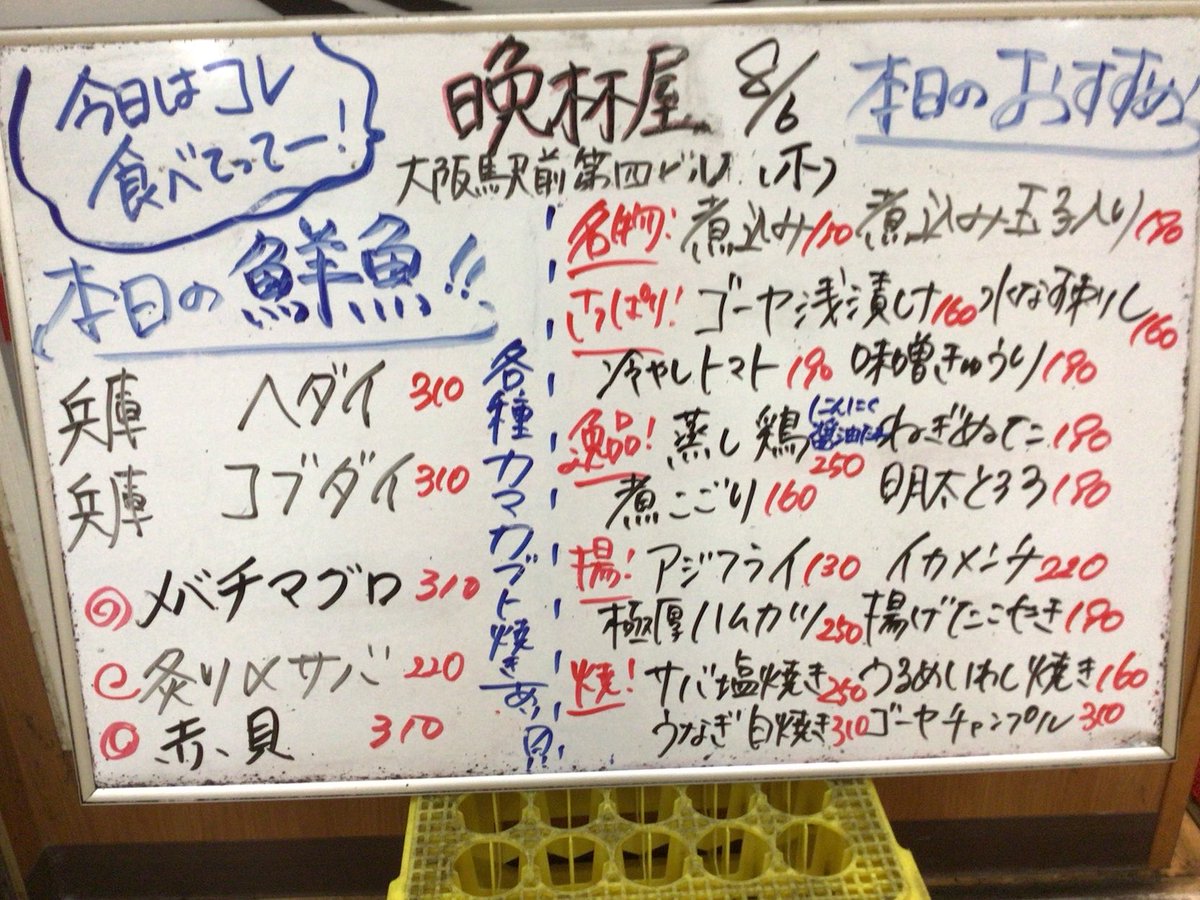 今日はコレ
食べてってー!
晩杯屋 8/6
大阪駅前第四ビル (木)
本日のおすすめ!
本日の鮮魚!!
兵庫 ヘダイ 310
兵庫 コブダイ 310
メバチマグロ 310
炙り〆サバ 220
赤貝 310
各種カマカブト焼きあり
名物! 煮込み 150 煮込み玉子入り 190
さっぱり! ゴーヤ浅漬け 160 水なす刺し 160
冷やしトマト 190 味噌きゅうり 190
逸品! 蒸し鶏 にんにく醤油だれ 250 ねぎぬた 190
煮こごり 160 明太とろろ 190
揚! アジフライ 130 イカメンチ 220
極厚ハムカツ 250 揚げたこやき 190
焼! サバ塩焼き 250 うるめいわし焼き 160
うなぎ白焼き 310 ゴーヤチャンプル 310